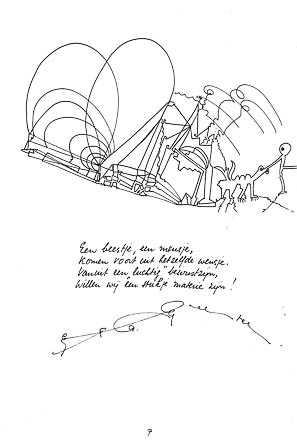 Een beestje, een mensje,
Komen voort uit hetzelfde wensje.
Vanuit een "luchtig" bewustzijn,
willen wij een stukje materie zijn!
7